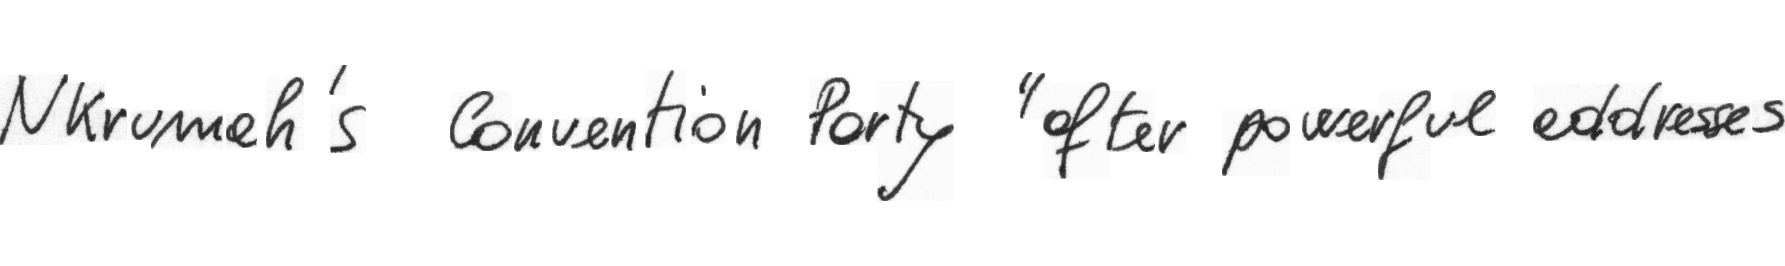 Nkrumah's Convention Party "after powerful addresses